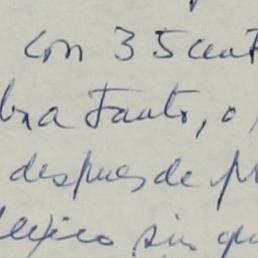 con 35 cent
bra tanto, o
despues de pr
lexico sin qu